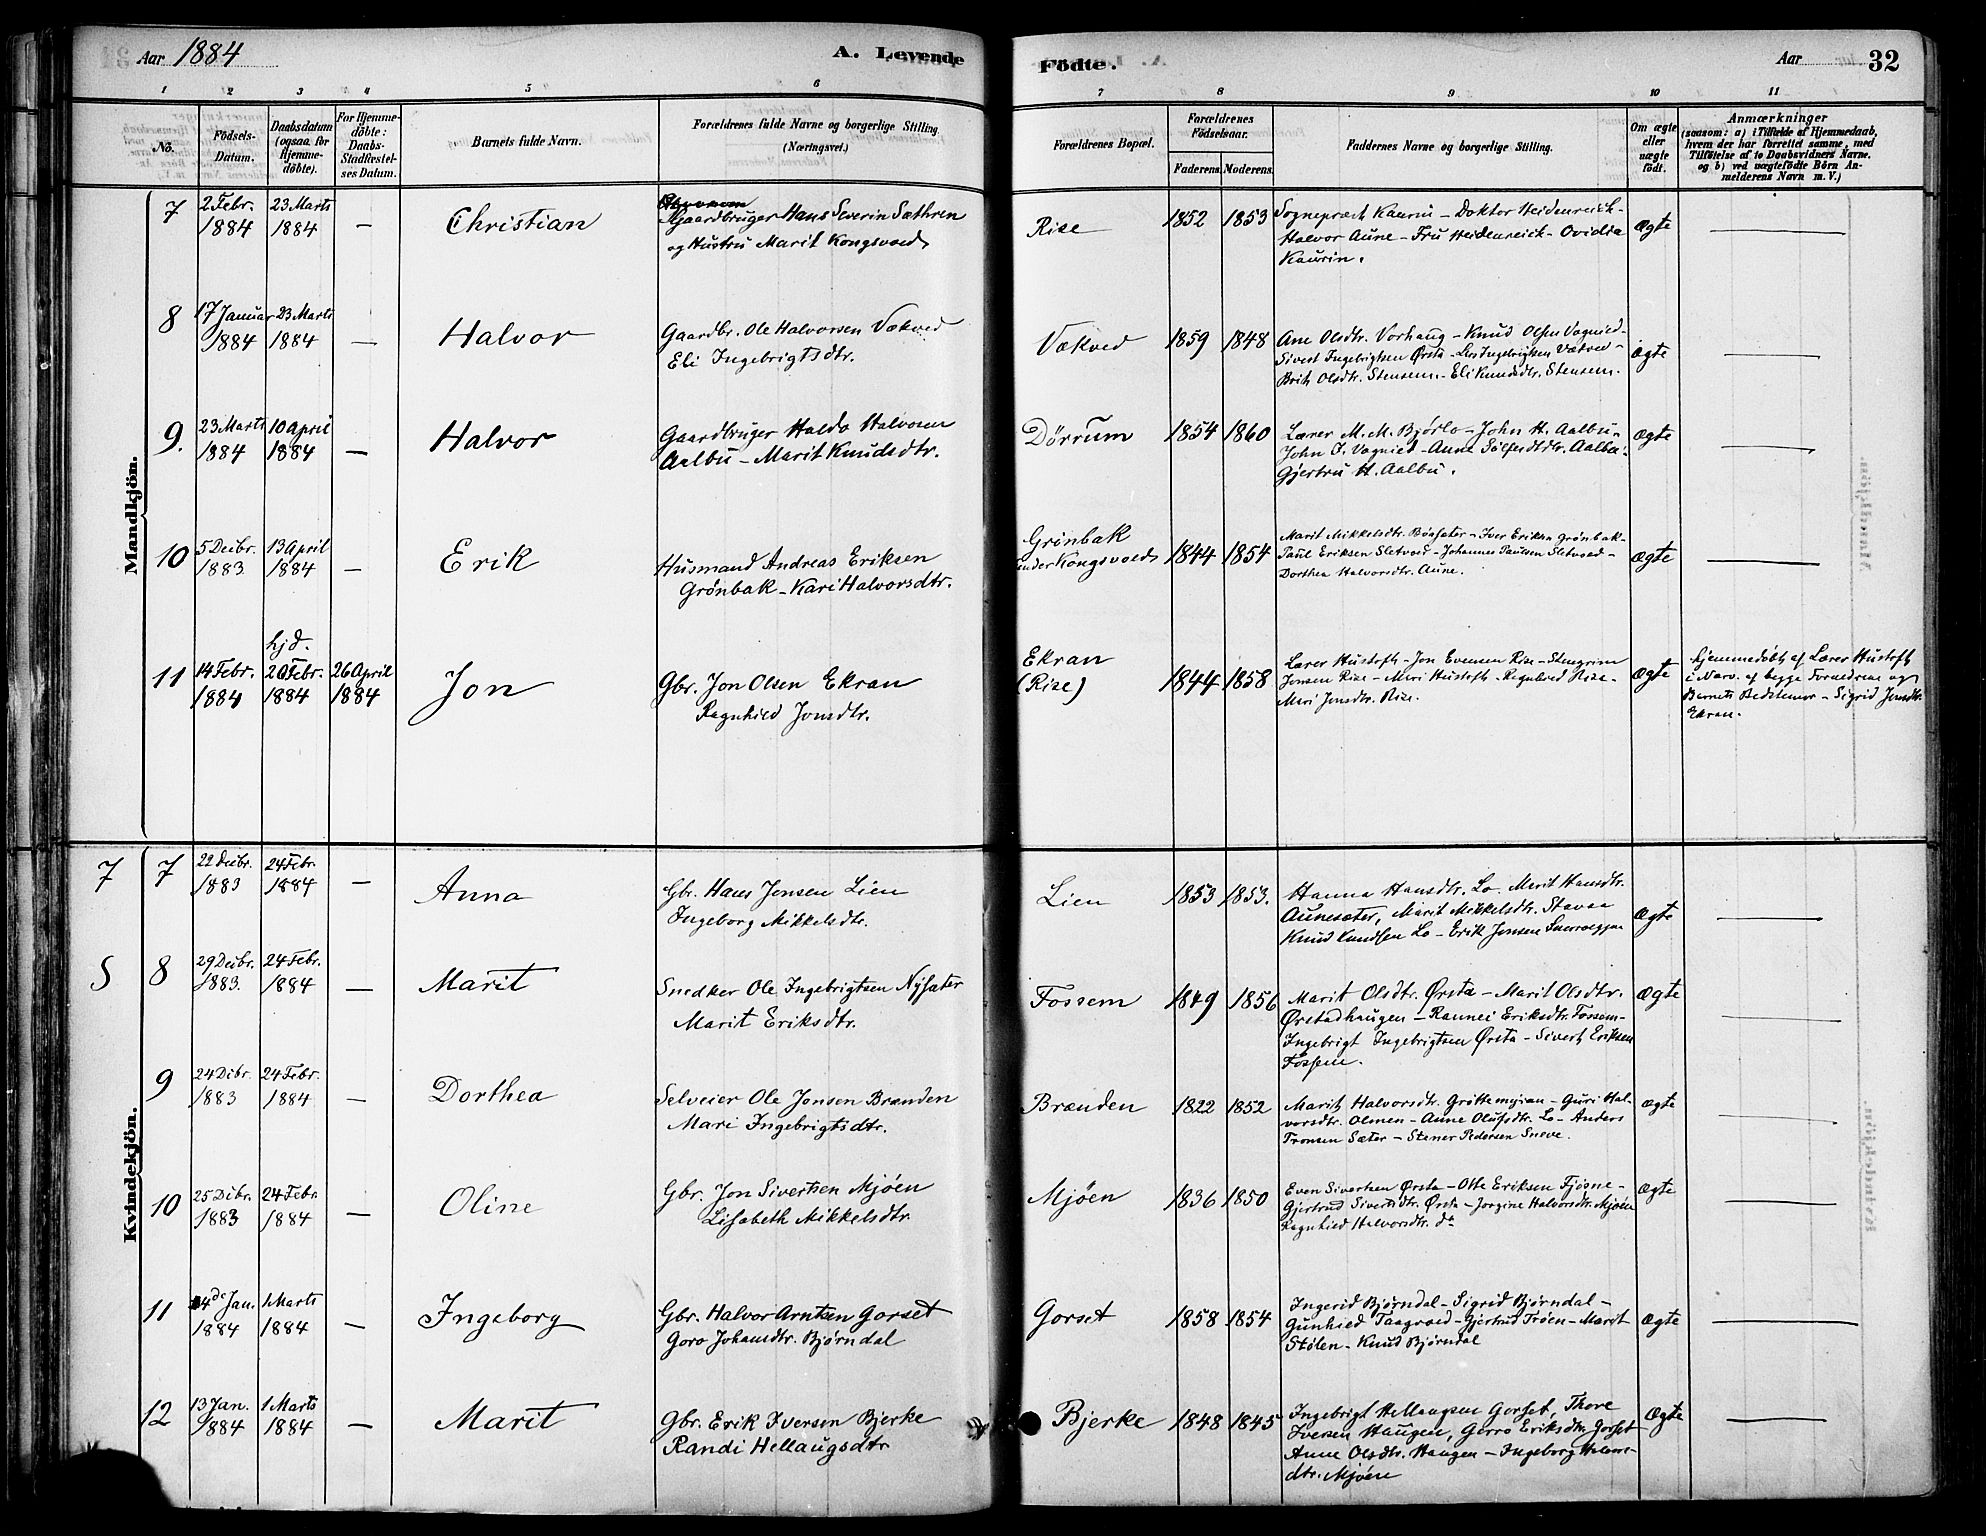 Aar 1884
A. Levende
Födte.
Aar
32
1 2 3 4 5 6 7 8 9 10 11
No.
Födsels-Datum.
Daabsdatum (ogsaa for Hjemme-döbte).
For Hjemme-döbte: Daabs-Stadfæstel-ses Datum.
Barnets fulde Navn.
Forældrenes fulde Navne og borgerlige Stilling.
(Næringsvei.)
Forældrenes Bopæl.
Forældrenes Födselsaar.
Faderens. Moderens.
Faddernes Navne og borgerlige Stilling.
Om ægte eller uægte födt.
Anmærkninger
(saasom: a) i Tilfælde af Hjemmedaab,
hvem der har forrettet samme, med
Tilföielse af to Daabsvidners Navne.
og b) ved uægtefödte Börn An-
melderens Navn m. V.)
Mandkjön.
7
2 Febr. 1884
23 Marts 1884
—
Christian
Gaardbruger Hans Severin Sæthren
og Hustru Marit Kongsvold
Rise
1852 1853
Sogneprest Kaurin - Doktor Heidenreich-
Halvor Aune - Fru Heidenreich - Ovidia
Kaurin.
Ægte
8
17 Januar 1884
23 Marts 1884
—
Halvor
Gaardbr. Ole Halvorsen Vækved
Eli Ingebrigtsdtr.
Vækved
1859 1848
Ane Olsdtr. Vorhaug - Knud Olsen Vognied-
Sivert Ingebrigtsen Ørsta - Lars Ingebrigtsen Vækved -
Brit Olsdtr. Stensem - Eli Knudsdtr. Stensem.
ægte
9.
23 Marts 1884
10 April 1884
—
Halvor
Gaardbruger Haldo Halvorsen
Aalbu - Marit Knudsdtr.
Dörrum
1854 1860
Lærer M. M. Bjørlo - John H. Aalbu -
John I. Vognied - Anne Sölfestdtr. Aalbu -
Gjertru H. Aalbu.
ægte
10
5 Decbr. 1883
13 April 1884
—
Erik
Husmand Andreas Eriksen
Grönbak - Kari Halvorsdtr.
Grönbak
under Kongsvold
1844 1854
Marit Mikkelsdtr. Bönsæter - Iver Eriksen Grönbak-
Paul Eriksen Sletvold - Johannes Paulsen Sletvold -
Dorthea Halvorsdtr. Aune.
Ægte
11
14 Febr. 1884
hjd.
20 Febr. 1884
26 April 1884
Jon
Gbr. Jon Olsen Ekran
Ragnhild Jonsdtr.
Ekran
(Rise)
1844 1858
Lærer Hustoft - Jon Evensen Rise - Stengrim
Jonsen Rise - Meri Hustoft - Ragnhild Rise -
Meri Jonsdtr. Rise.
Ægte
Hjemmedöbt af Lærer Hustoft
i Nærv. af begge Forældrene og
Barnets Bedstemor - Sigrid Jonsdtr.
Ekran.
Kvindekjön.
7
7
22 Decbr. 1883
24 Febr. 1884
—
Anna
Gbr. Hans Jonsen Lien
Ingeborg Mikkelsdtr.
Lien
1853 1853.
Hanna Hansdtr. Lo. Merit Hansdtr.
Aunesæter, Marit Mikkelsdtr. Stavaa
Knud Knudsen Lo - Erik Jonsen
Ægte
5
8
29 Decbr. 1883.
24 Febr. 1884
—
Marit
Snedker Ole Ingebrigtsen Nysæter
Marit Eriksdtr.
Fossem
1849 1856
Marit Olsdtr. Ørsta - Marit Olsdtr.
Ørstadhaugen - Rannei Eriksdtr. Fossem-
Ingebrigt Ingebrigtsen Ørsta - Sivert Eriksen
Fossem.
Ægte
9
24 Dcbr. 1883
24 Febr. 1884
—
Dorthea
Selveier Ole Jonsen Brænden
Mari Ingebrigtsdtr.
Brænden
1822 1852
Marit Halvorsdtr. Gröttemyran - Guri Hal-
vorsdtr. Olmen - Anne Olufsdtr. Lo - Anders
Tronsen Sæter - Stener Pedersen Sneve.
ægte
10
25 Dcbr. 1883
24 Febr. 1884
—
Oline
Gbr. Jon Sivertsen Mjöen
Lisabeth Mikkelsdtr.
Mjöen
1836 1850
Even Sivertsen Ørsta - Otte Eriksen Fjösne -
Gjertrud Sivertsdtr. Ørsta - Jorgine Halvorsdtr. Mjöen
Ragnhild Halvorsdtr. do
Ægte
11
4de Jan. 1884
1 Marts 1884
—
Ingeborg
Gbr. Halvor Arntsen Gorset
Goro Johansdtr. Björndal
Gorset
1858 1854
Ingerid Björndal - Sigrid Björndal -
Gunhild Taagvold - Gjertrud Tröen - Marit
Stölen - Knud Björndal
Ægte
12
13 Jan. 1884
1 Marts 1884
—
Marit
Gbr. Erik Iversen Bjerke
Randi Hellaugsdtr
Bjerke
1848 1845
Ingebrigt Hellaugsen Gorset, Thore
Iversen Haugen, Gorro Eriksdtr Gorset
Anne Olsdtr. Haugen - Ingeborg Halvors-
dtr. Mjöen
Ægte